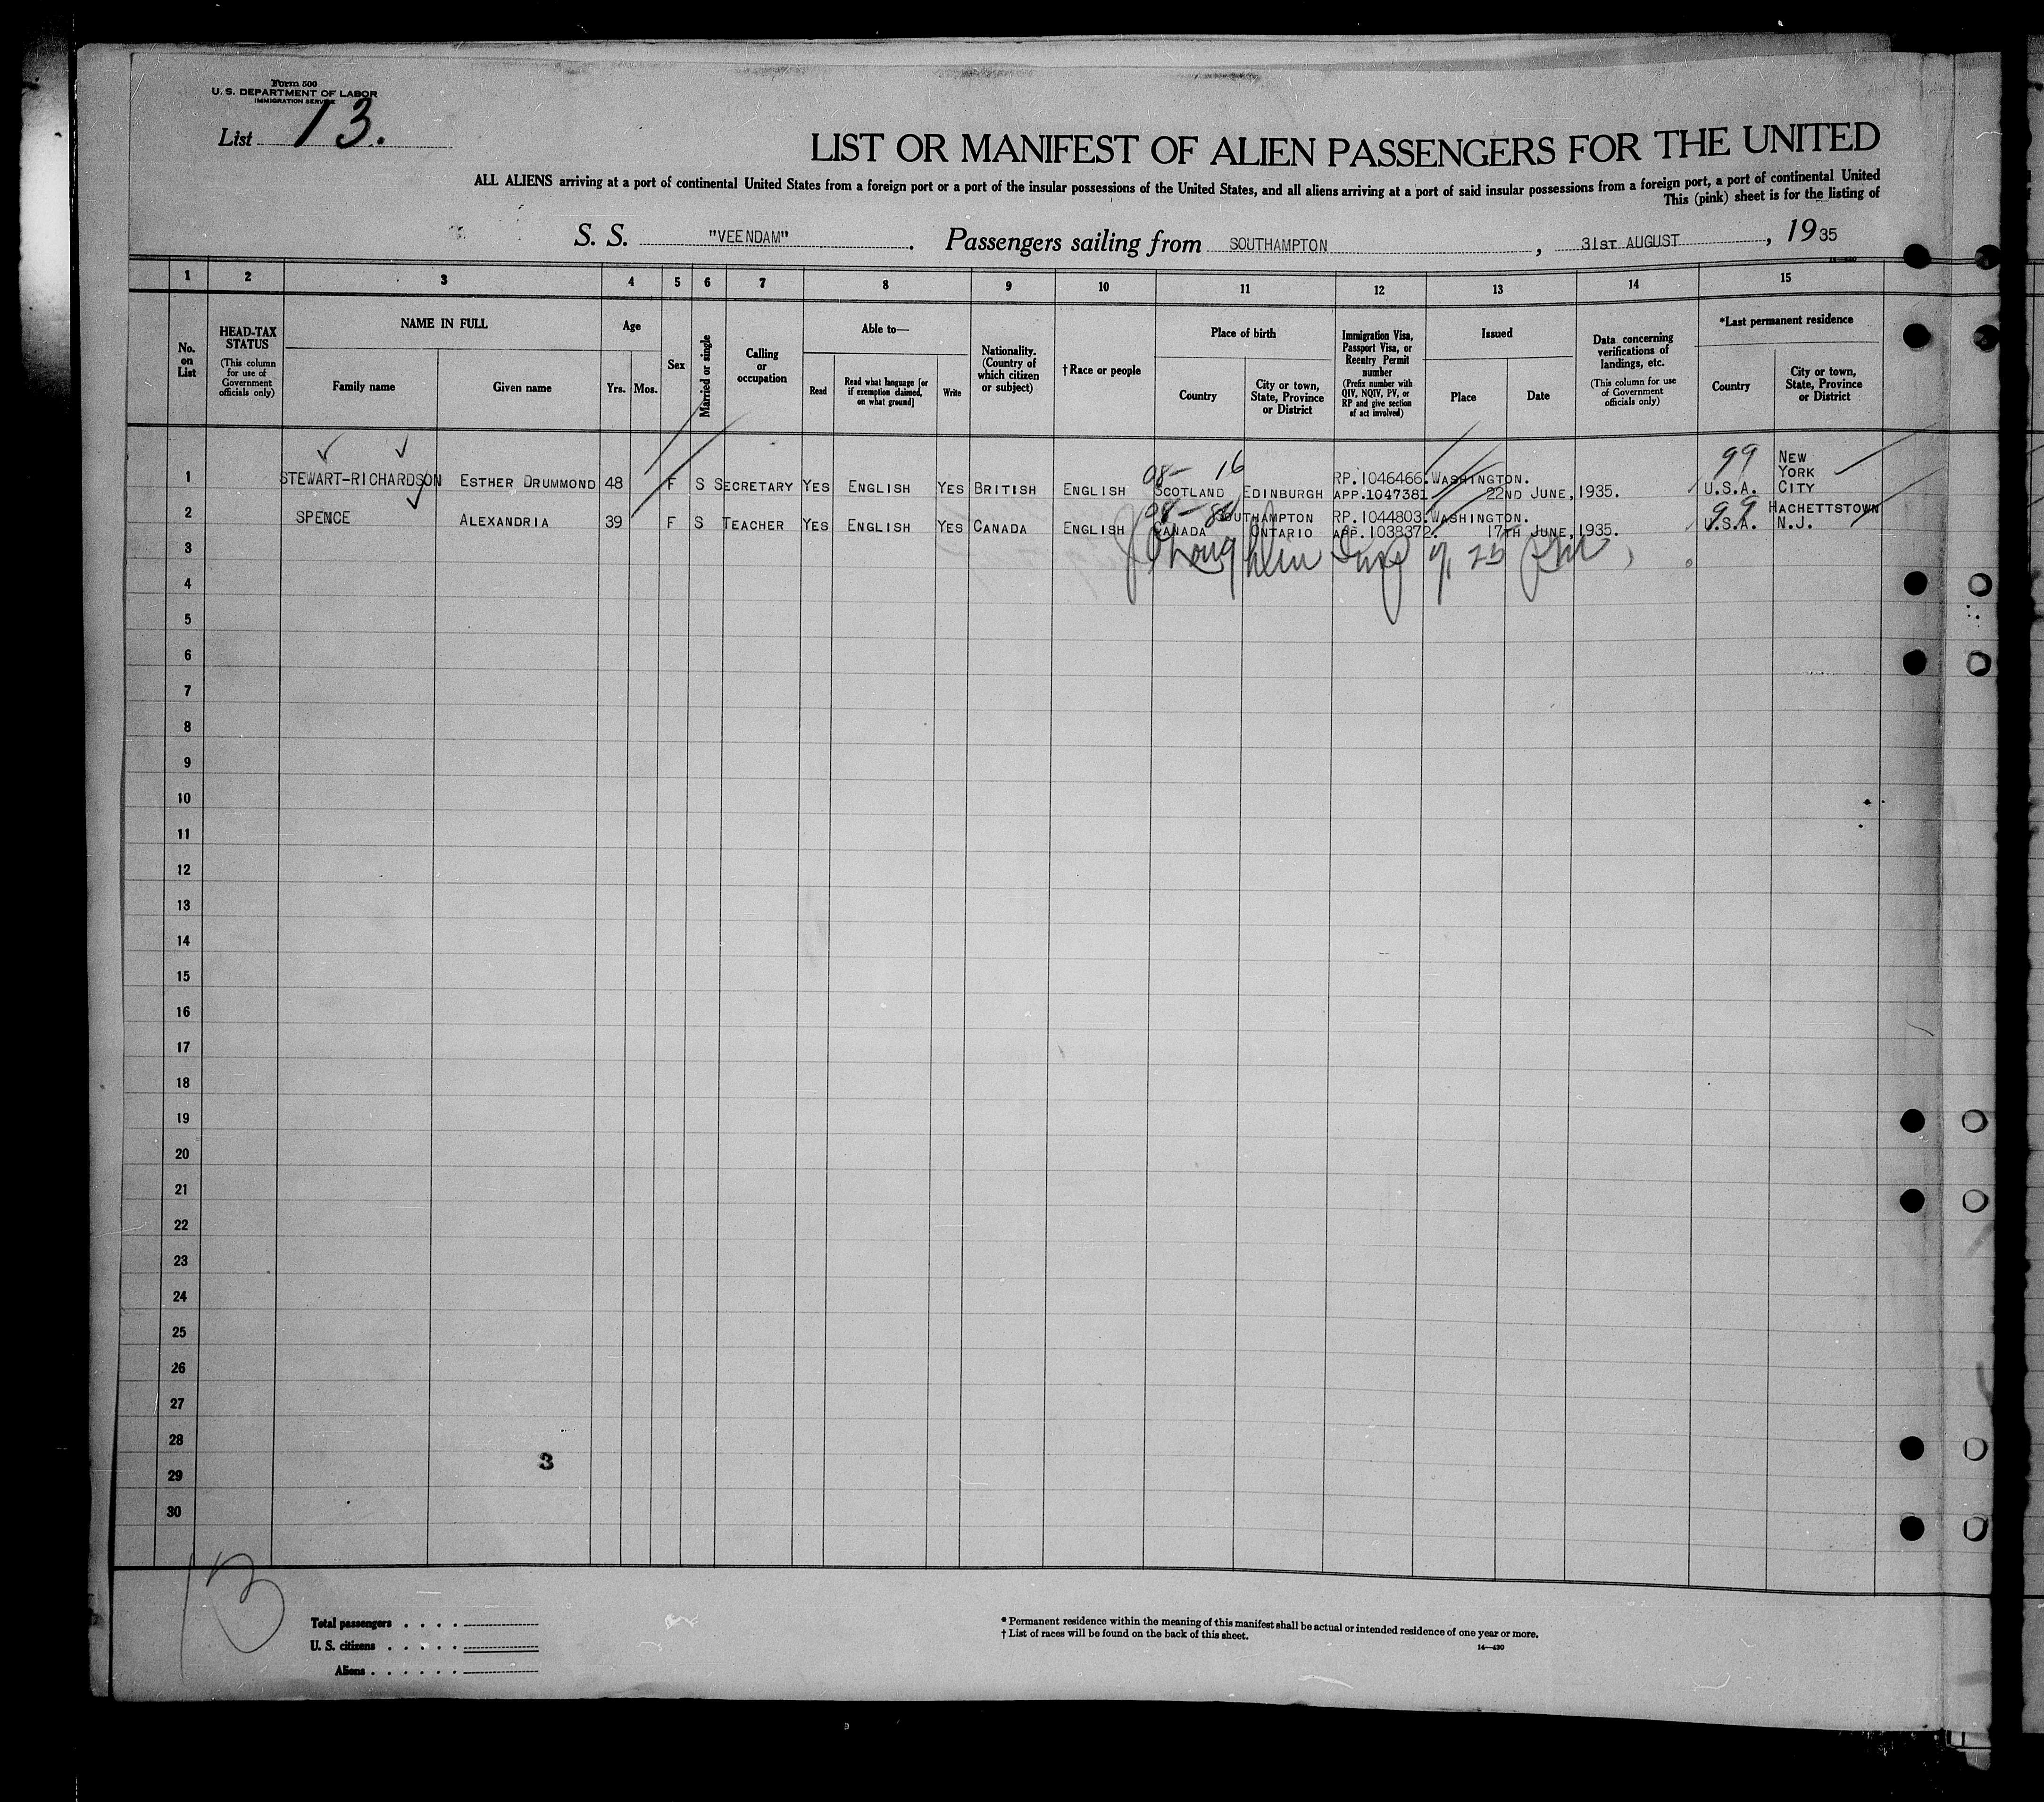 Form 500
U. S. DEPARTMENT OF LABOR
IMMIGRATION SERVICE
List 13.
LIST OR MANIFEST OF ALIEN PASSENGERS FOR THE UNITED
ALL ALIENS arriving at a port of continental United States from a foreign port or a port of the insular possessions of the United States, and all aliens arriving at a port of said insular possessions from a foreign port, a port of continental United
This (pink) sheet is for the listing of
S. S. "VEENDAM". Passengers sailing from SOUTHAMPTON, 31ST AUGUST, 1935
1 2 3 4 5 6 7 8 9 10 11 12 13 14 15
No. on List
HEAD-TAX STATUS
(This column for use of Government officials only)
NAME IN FULL
Family name
Given name
Age
Yrs. Mos.
Sex
Married or single
Calling or occupation
Able to—
Read
Read what language [or if exemption claimed, on what ground]
Write
Nationality. (Country of which citizen or subject)
†Race or people
Place of birth
Country
City or town, State, Province or District
Immigration Visa, Passport Visa, or Reentry Permit number
(Prefix number with QIV, NQIV, PV, or RP and give section of act involved)
Issued
Place
Date
Data concerning verifications of landings, etc.
(This column for use of Government officials only)
*Last permanent residence
Country
City or town, State, Province or District
98- 16 99 NEW
YORK
1 STEWART-RICHARDSON ESTHER DRUMMOND 48 F S SECRETARY YES ENGLISH YES BRITISH ENGLISH SCOTLAND EDINBURGH RP.1046466. WASHINGTON.
APP.1047381 22ND JUNE, 1935. U.S.A. CITY
98- 99 HACHETTSTOWN
2 SPENCE ALEXANDRIA 39 F S TEACHER YES ENGLISH YES CANADA ENGLISH CANADA SOUTHAMPTON ONTARIO RP.1044803. WASHINGTON.
APP.1038372. 17TH JUNE, 1935. U.S.A. N.J.
3
4
5
6
7
8
9
10
11
12
13
14
15
16
17
18
19
20
21
22
23
24
25
26
27
28
3
29
30
13
Total passengers
U. S. citizens
Aliens
* Permanent residence within the meaning of this manifest shall be actual or intended residence of one year or more.
† List of races will be found on the back of this sheet.
14—430